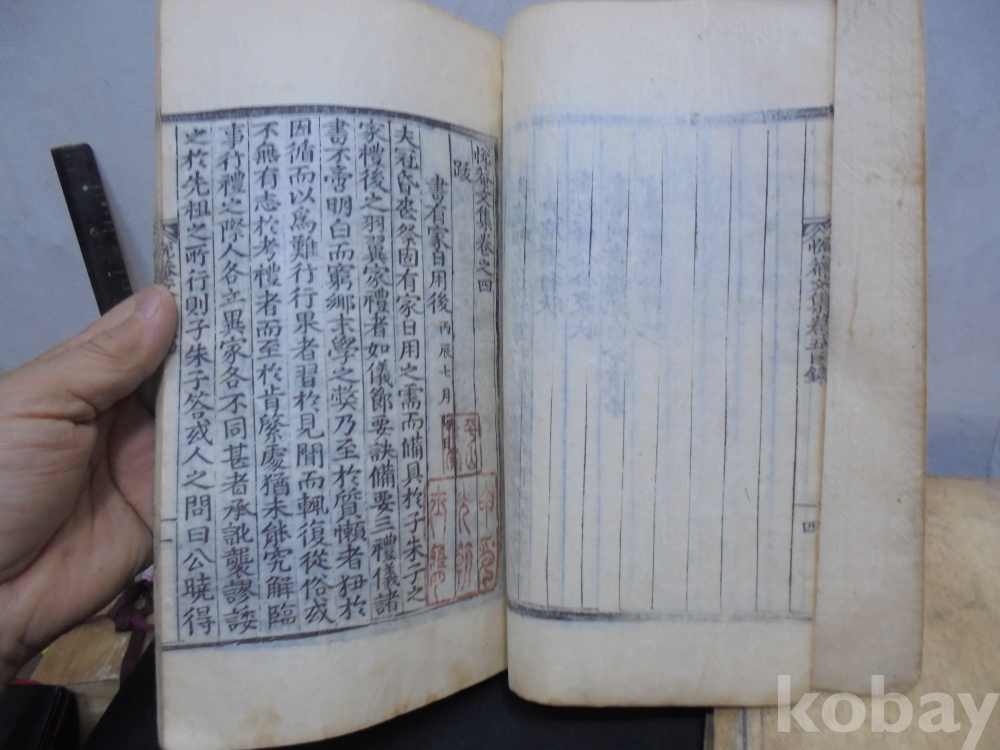 菴文集卷五目錄
四
菴文集卷之四
跋
書有家日用後 丙辰七月
夫冠昏喪祭固有家日用之需而備具於子朱子之
家禮後之羽翼家禮者如儀節要訣備要三禮儀諸
書不啻明白而窮鄕末學之弊乃至於質懶者狃於
因循而以爲難行行果者習於見聞而輒復從俗或
不無有志於考禮者而至於肯綮處猶未能究解臨
事行禮之際人各立異家各不同甚者承訛襲謬諉
之於先祖之所行則子朱子答或人之問曰公曉得
一
kobay